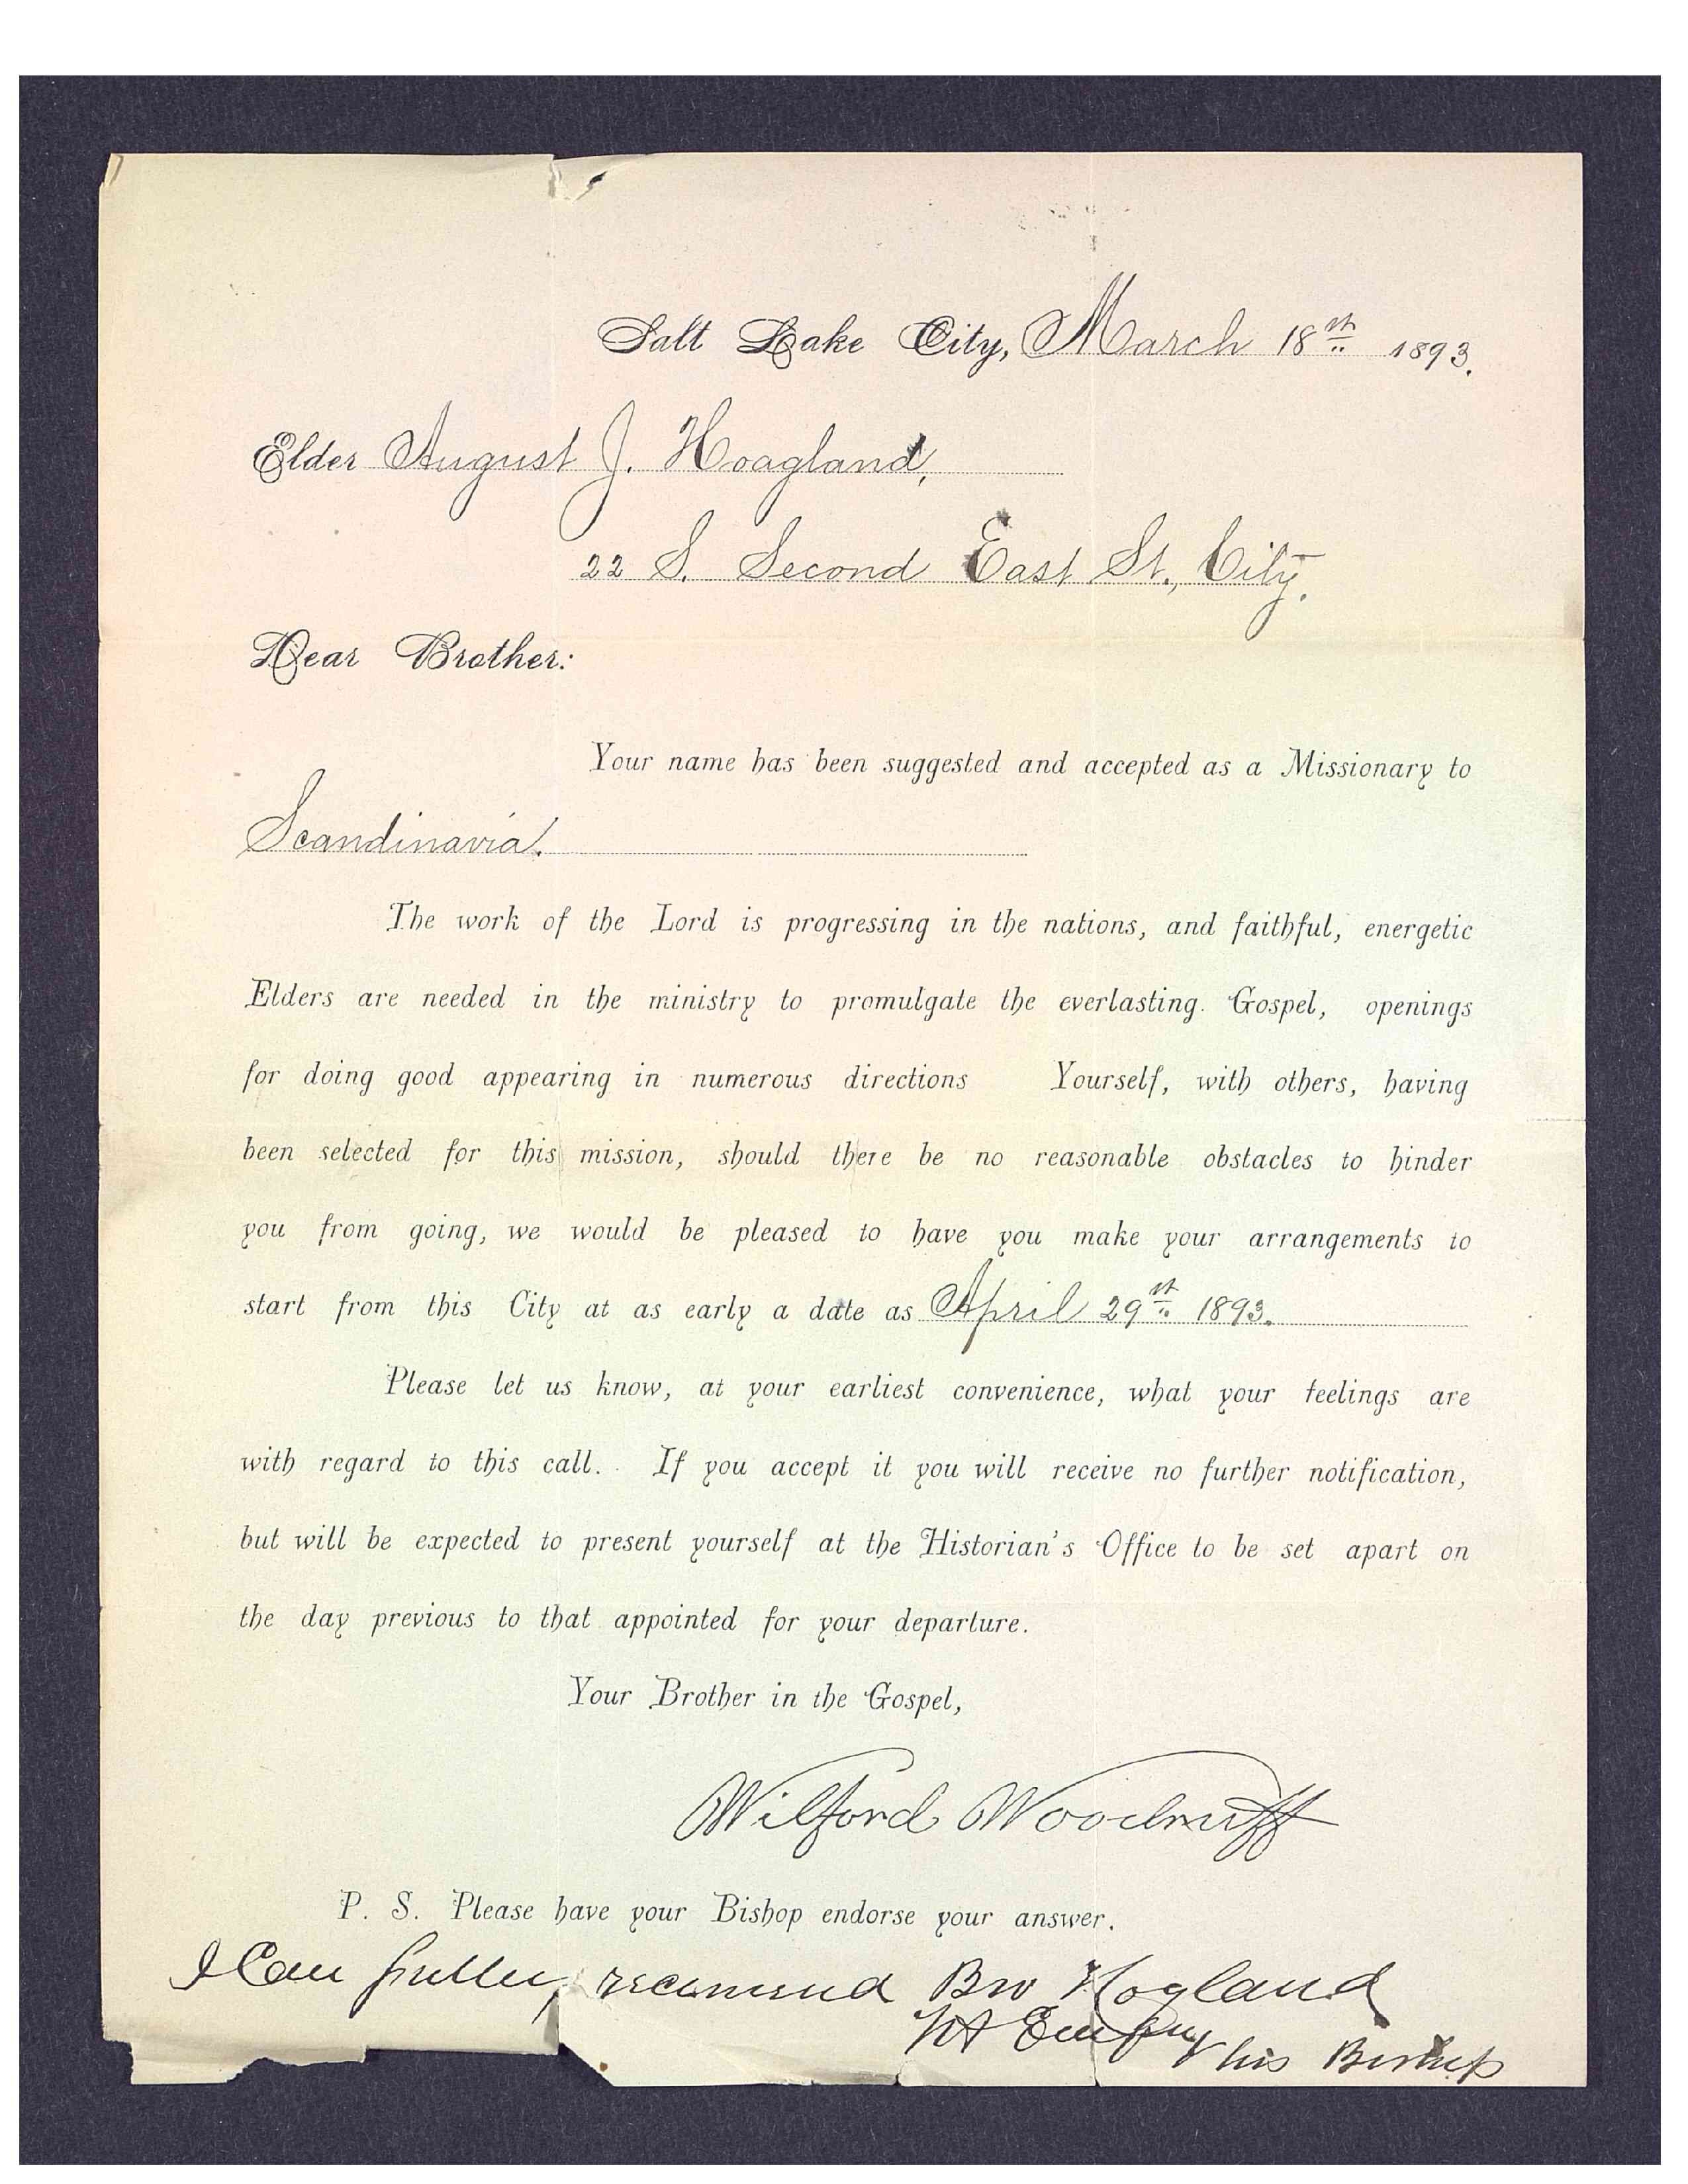 Salt Lake City, March 18th 1893.
Elder August J. Hoagland,
22 S. Second East St., City.
Dear Brother:
Your name has been suggested and accepted as a Missionary to
Scandinavia.
The work of the Lord is progressing in the nations, and faithful, energetic
Elders are needed in the ministry to promulgate the everlasting Gospel, openings
for doing good appearing in numerous directions Yourself, with others, having
been selected for this mission, should there be no reasonable obstacles to hinder
you from going, we would be pleased to have you make your arrangements to
start from this City at as early a date as April 29th 1893.
Please let us know, at your earliest convenience, what your feelings are
with regard to this call. If you accept it you will receive no further notification,
but will be expected to present yourself at the Historian's Office to be set apart on
the day previous to that appointed for your departure.
Your Brother in the Gospel,
Wilford Woodruff
P. S. Please have your Bishop endorse your answer.
I Can fully recommend Bro Hogland
his Bishop